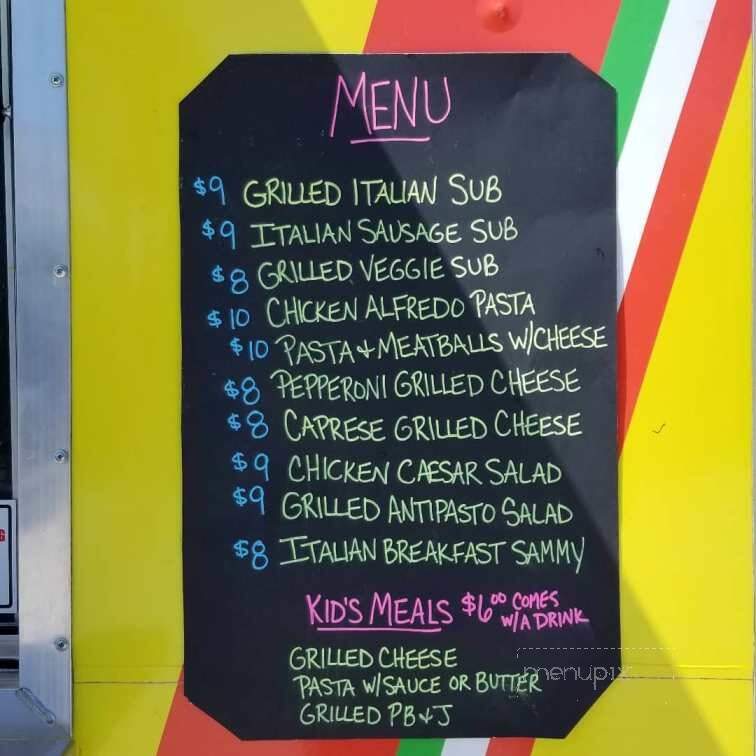 MENU
$9 GRILLED ITALIAN SUB
$9 ITALIAN SAUSAGE SUB
$8 GRILLED VEGGIE SUB
$10 CHICKEN ALFREDO PASTA
$10 PASTA + MEATBALLS W/CHEESE
$8 PEPPERONI GRILLED CHEESE
$8 CAPRESE GRILLED CHEESE
$9 CHICKEN CAESAR SALAD
$9 GRILLED ANTIPASTO SALAD
$8 ITALIAN BREAKFAST SAMMY
KID'S MEALS $6.00 COMES
W/A DRINK
GRILLED CHEESE
PASTA W/SAUCE OR BUTTER
GRILLED PB+J
menupix